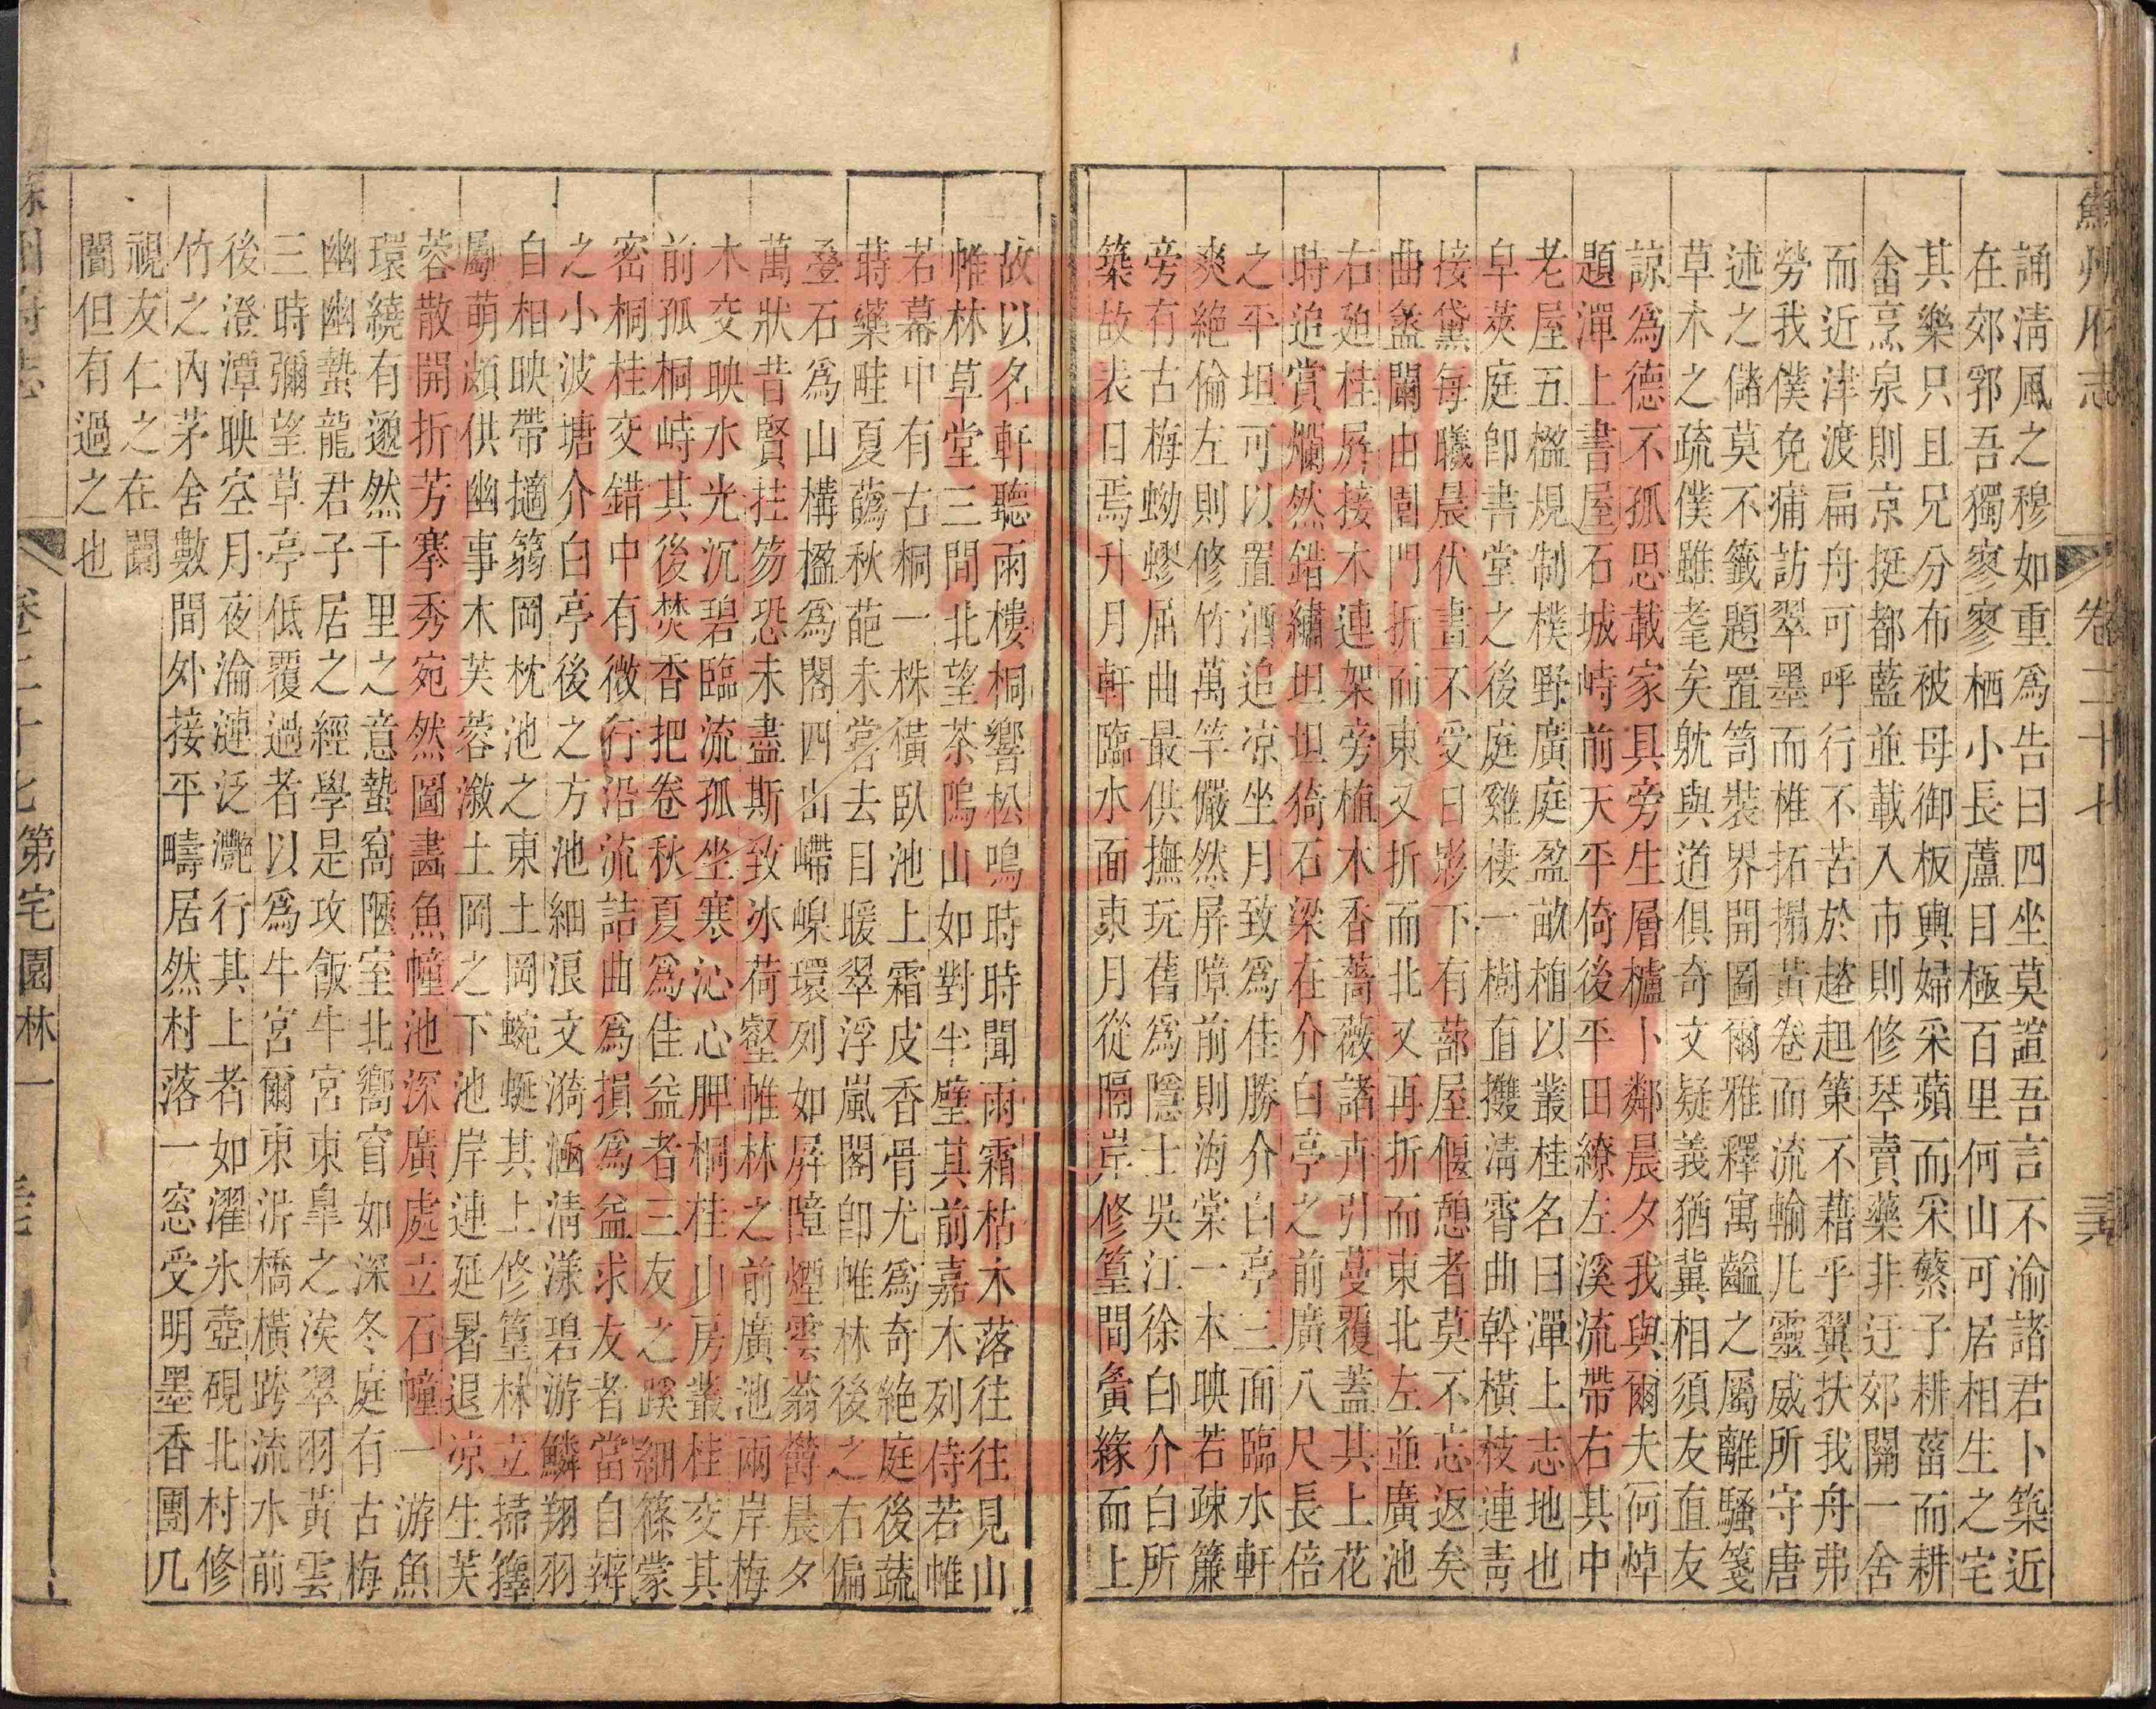 蘇州府志 卷二十七
誦清風之穆如重爲告曰四坐莫諠吾言不渝諸君卜築近
在郊郛吾獨寥寥栖小長蘆目極百里何山可居相生之宅
其樂只且兄分布被母御板輿婦采蘋而采蘩子耕菑而耕
畬烹泉則京挺都藍並載入市則修琴賣藥非迂郊關一舍
而近津渡扁舟可呼行不苦於趦趄第不藉乎翼扶我舟弗
勞我僕免痡訪翠墨而椎拓搨黃卷而流輸几靈威所守唐
述之儲莫不籤題置笥裝界開圖爾雅釋寓齸之屬離騷箋
草木之疏僕雖耄矣躭與道俱奇文疑義猶冀相須友直友
諒爲德不孤思載家具旁生層櫨卜鄰晨夕我與爾夫何悼
題潬上書屋石城峙前天平倚後平田繚左溪流帶右其中
老屋五楹規制樸野廣庭盈畝植以叢桂名曰潬上志地也
皁莢庭卽書堂之後庭雞棲一樹直攢淸霄曲幹橫枝連靑
接黛每曦晨伏晝不受日影下有蔀屋偃憩者莫不忘返矣
曲盝闌由園門折而東又折而北又再折而東北左並廣池
右廵桂屛接木連架旁植木香薔薇諸卉引蔓覆蓋其上花
時追賞爛然錯繡坦坦猗石梁在介白亭之前廣八尺長倍
之平坦可以置酒追凉坐月致爲佳勝介白亭三面臨水軒
爽絶倫左則修竹萬竿儼然屏障前則海棠一本映若疎簾
旁有古梅蚴蟉屈曲最供撫玩舊爲隱士吳江徐白介白所
築故表曰焉升月軒臨水面東月從隔岸修篁間夤緣而上
故以名軒聽雨樓桐響松鳴時時聞雨霜枯木落往往見山
帷林草堂三間北望茶塢山如對半壁其前嘉木列侍若帷
若幕中有古桐一株橫臥池上霜皮香骨尤爲奇絶庭後蔬
蒔藥畦夏蘤秋葩未嘗去目暖翠浮嵐閣卽帷林後之右偏
叠石爲山構楹爲閣四出嵽嵲環列如屛障煙雲蓊鬱晨夕
萬狀昔賢拄笏恐未盡斯致冰荷壑帷林之前廣池兩岸梅
木交映水光沉碧臨流孤坐寒沁心脾桐桂山房叢桂交其
前孤桐峙其後焚香把卷秋夏爲佳益者三友之蹊細篠蒙
密桐桂交錯中有微行沿流詰曲爲損爲益求友者當自辨
之小波塘介白亭後之方池細浪文漪涵淸漾碧游鱗翔羽
自相映帶擿篛岡枕池之東土岡蜿蜒其上修篁林立掃籜
屬萌頗供幽事木芙蓉漵土岡之下池岸連延暑退凉生芙
蓉散開折芳搴秀宛然圖畵魚幢池深廣處立石幢一游魚
環繞有邈然千里之意蟄窩陿室北嚮窅如深冬庭有古梅
幽幽蟄龍君子居之經學是攻飯牛宮東皐之涘翠羽黃雲
三時彌望草亭低覆過者以爲牛宮爾東泋橋橫跨流水前
後澄潭映空月夜淪漣泛灧行其上者如濯氷壺硯北村修
竹之內茅舍數間外接平疇居然村落一窓受明墨香團几
視友仁之在闤
闠但有過之也
蘇州府志 卷二十七 第宅園林一